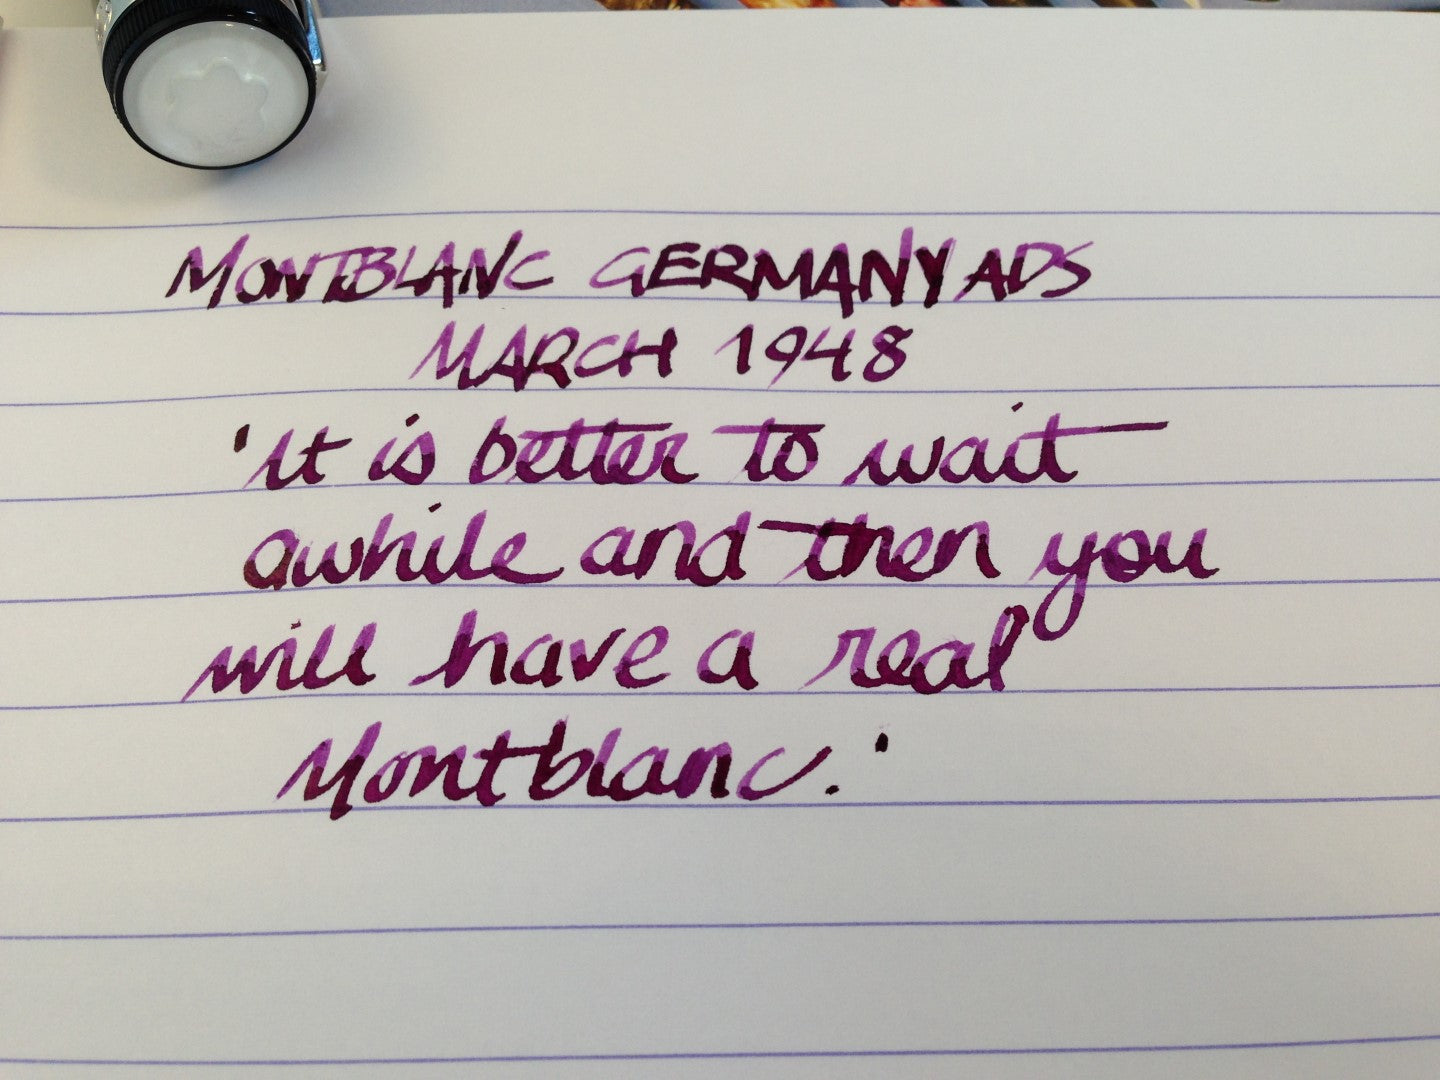 MONTBLANC GERMANY ADS
MARCH 1948
'It is better to wait
awhile and then you
will have a real
Montblanc.'